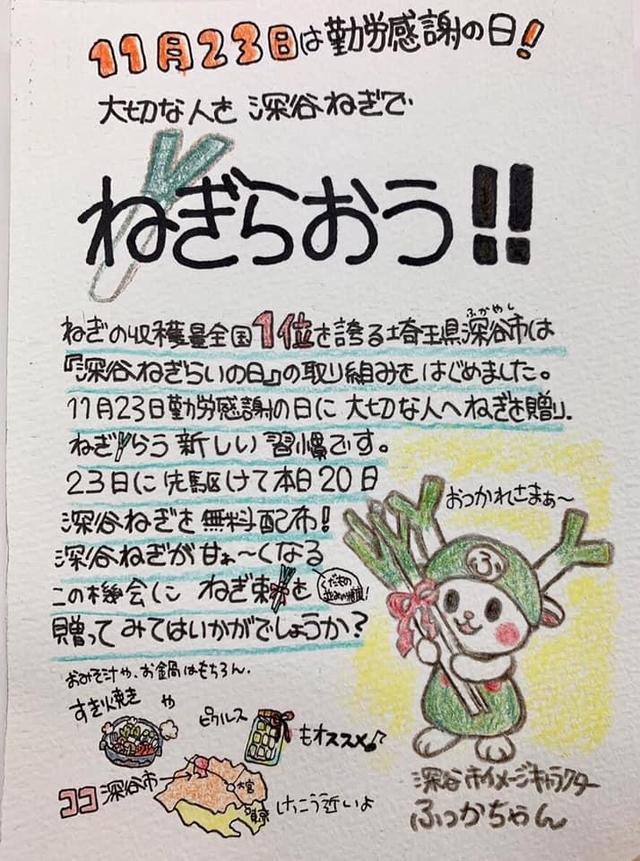 11月23日は勤労感謝の日!
大切な人を深谷ねぎで
ねぎらおう!!
ねぎの収穫量全国1位を誇る埼玉県深谷市は
ふかやし
『深谷ねぎらいの日』の取り組みをはじめました。
11月23日勤労感謝の日に大切な人へねぎを贈り、
ねぎらう新しい習慣です。
23日に先駆けて本日20日
深谷ねぎを無料配布!
深谷ねぎが甘ぁ〜くなる
この機会にねぎ束を
くだもの
並みの糖度!
贈ってみてはいかがでしょうか?
おつかれさまぁ〜
ふ
おみそ汁や、お鍋はもちろん、
すき焼きや
ピクルス
もオススメ♪
ココ深谷市
大宮
東京
けっこう近いよ
深谷市イメージキャラクター
ふっかちゃん